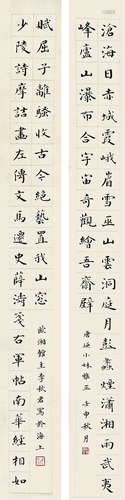 滄海日赤城霞峨嵋雪巫峽雲洞庭月彭蠡煙瀟湘雨武夷
峰廬山瀑布合宇宙奇觀繪吾齋壁
小妹雅正 壬申秋月
少陵詩摩詰畫左傳文馬遷史薛濤箋右軍帖南華經相如
賦屈子離騷收古今絕藝置我山窗
歐湘館主李秋君寫於海上